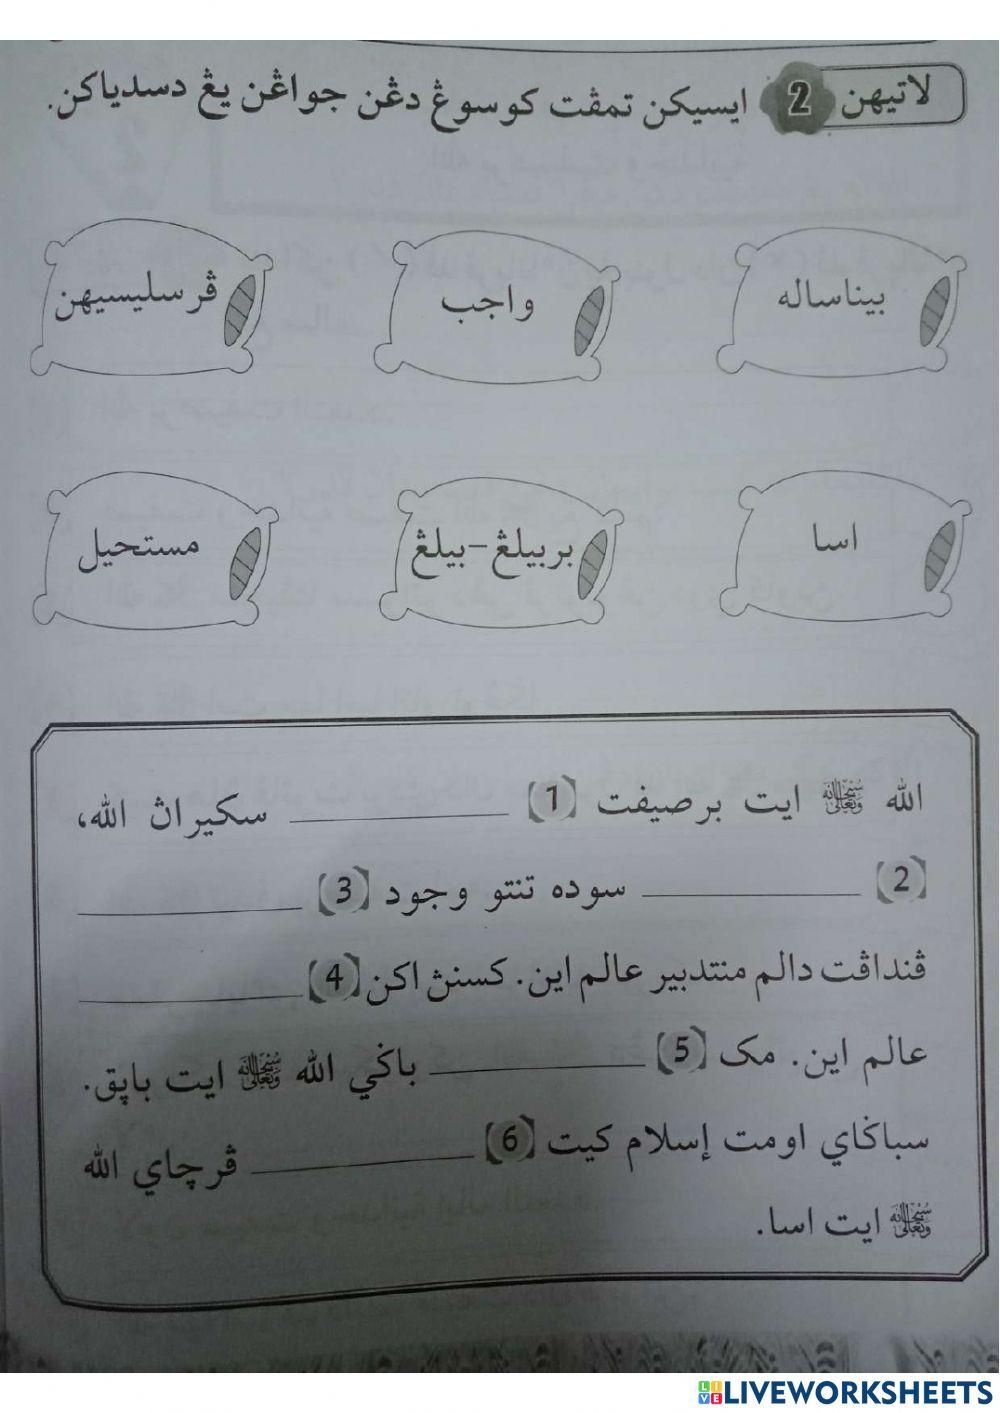 لاتيهن 2 ايسيکن تمڤت کوسوڠ دڠن جواڤن يڠ دسدياکن.
بيناساله
واجب
ڤرسليسيهن
اسا
بربيلڠ-بيلڠ
مستحيل
الله ﷾ ايت برصيفت (1) __________ سکيراڽ الله،
(2) __________ سوده تنتو وجود (3) __________
ڤنداڤت دالم منتدبير عالم اين. کسنڽ اکن (4) __________
عالم اين. مک (5) __________ باݢي الله ﷾ ايت باڽق.
سباݢاي اومت إسلام کيت (6) __________ ڤرچاي الله
﷾ ايت اسا.
LIVEWORKSHEETS